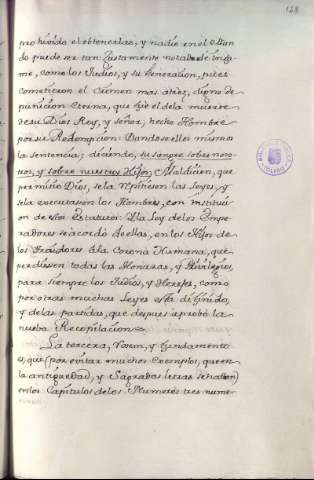 128
prohivido el obtenerlas, y nadie en el Mun-
do puede ser tan Justamente notado de infa-
me, como los Judios, y su Generacion, pues
cometieron el Crimen mas atroz, digno de
punicion Eterna, que fue el de la muerte
de su Dios Rey, y señor, hecho Hombre
por su Redempcion: Dandose ellos mismos
la sentencia; diciendo, su sangre sobre noso-
tros, y sobre nuestros Hijos; Maldicion, que
permitió Dios, se la
las Leyes, y
se la executasen los Hombres, con institui-
on de sus Estatutos: Y la Ley de los Empe-
radores se acordó de ellas, en los Hijos de
los Traidores à la Corona Humana, que
perdiessen todas las Honrras, y Privilegios,
para siempre los Judios, y Herejes, como
por otras muchas Leyes està difinido,
y de las partidas, que despues aprobò la
nueba Recopilacion
La tercera, Razon, y fundamento
es, que (por evitar muchos Exemplos, que en
la antiguedad, y Sagradas letras se hallan)
en los Capitulos de los Numeros tres nume-